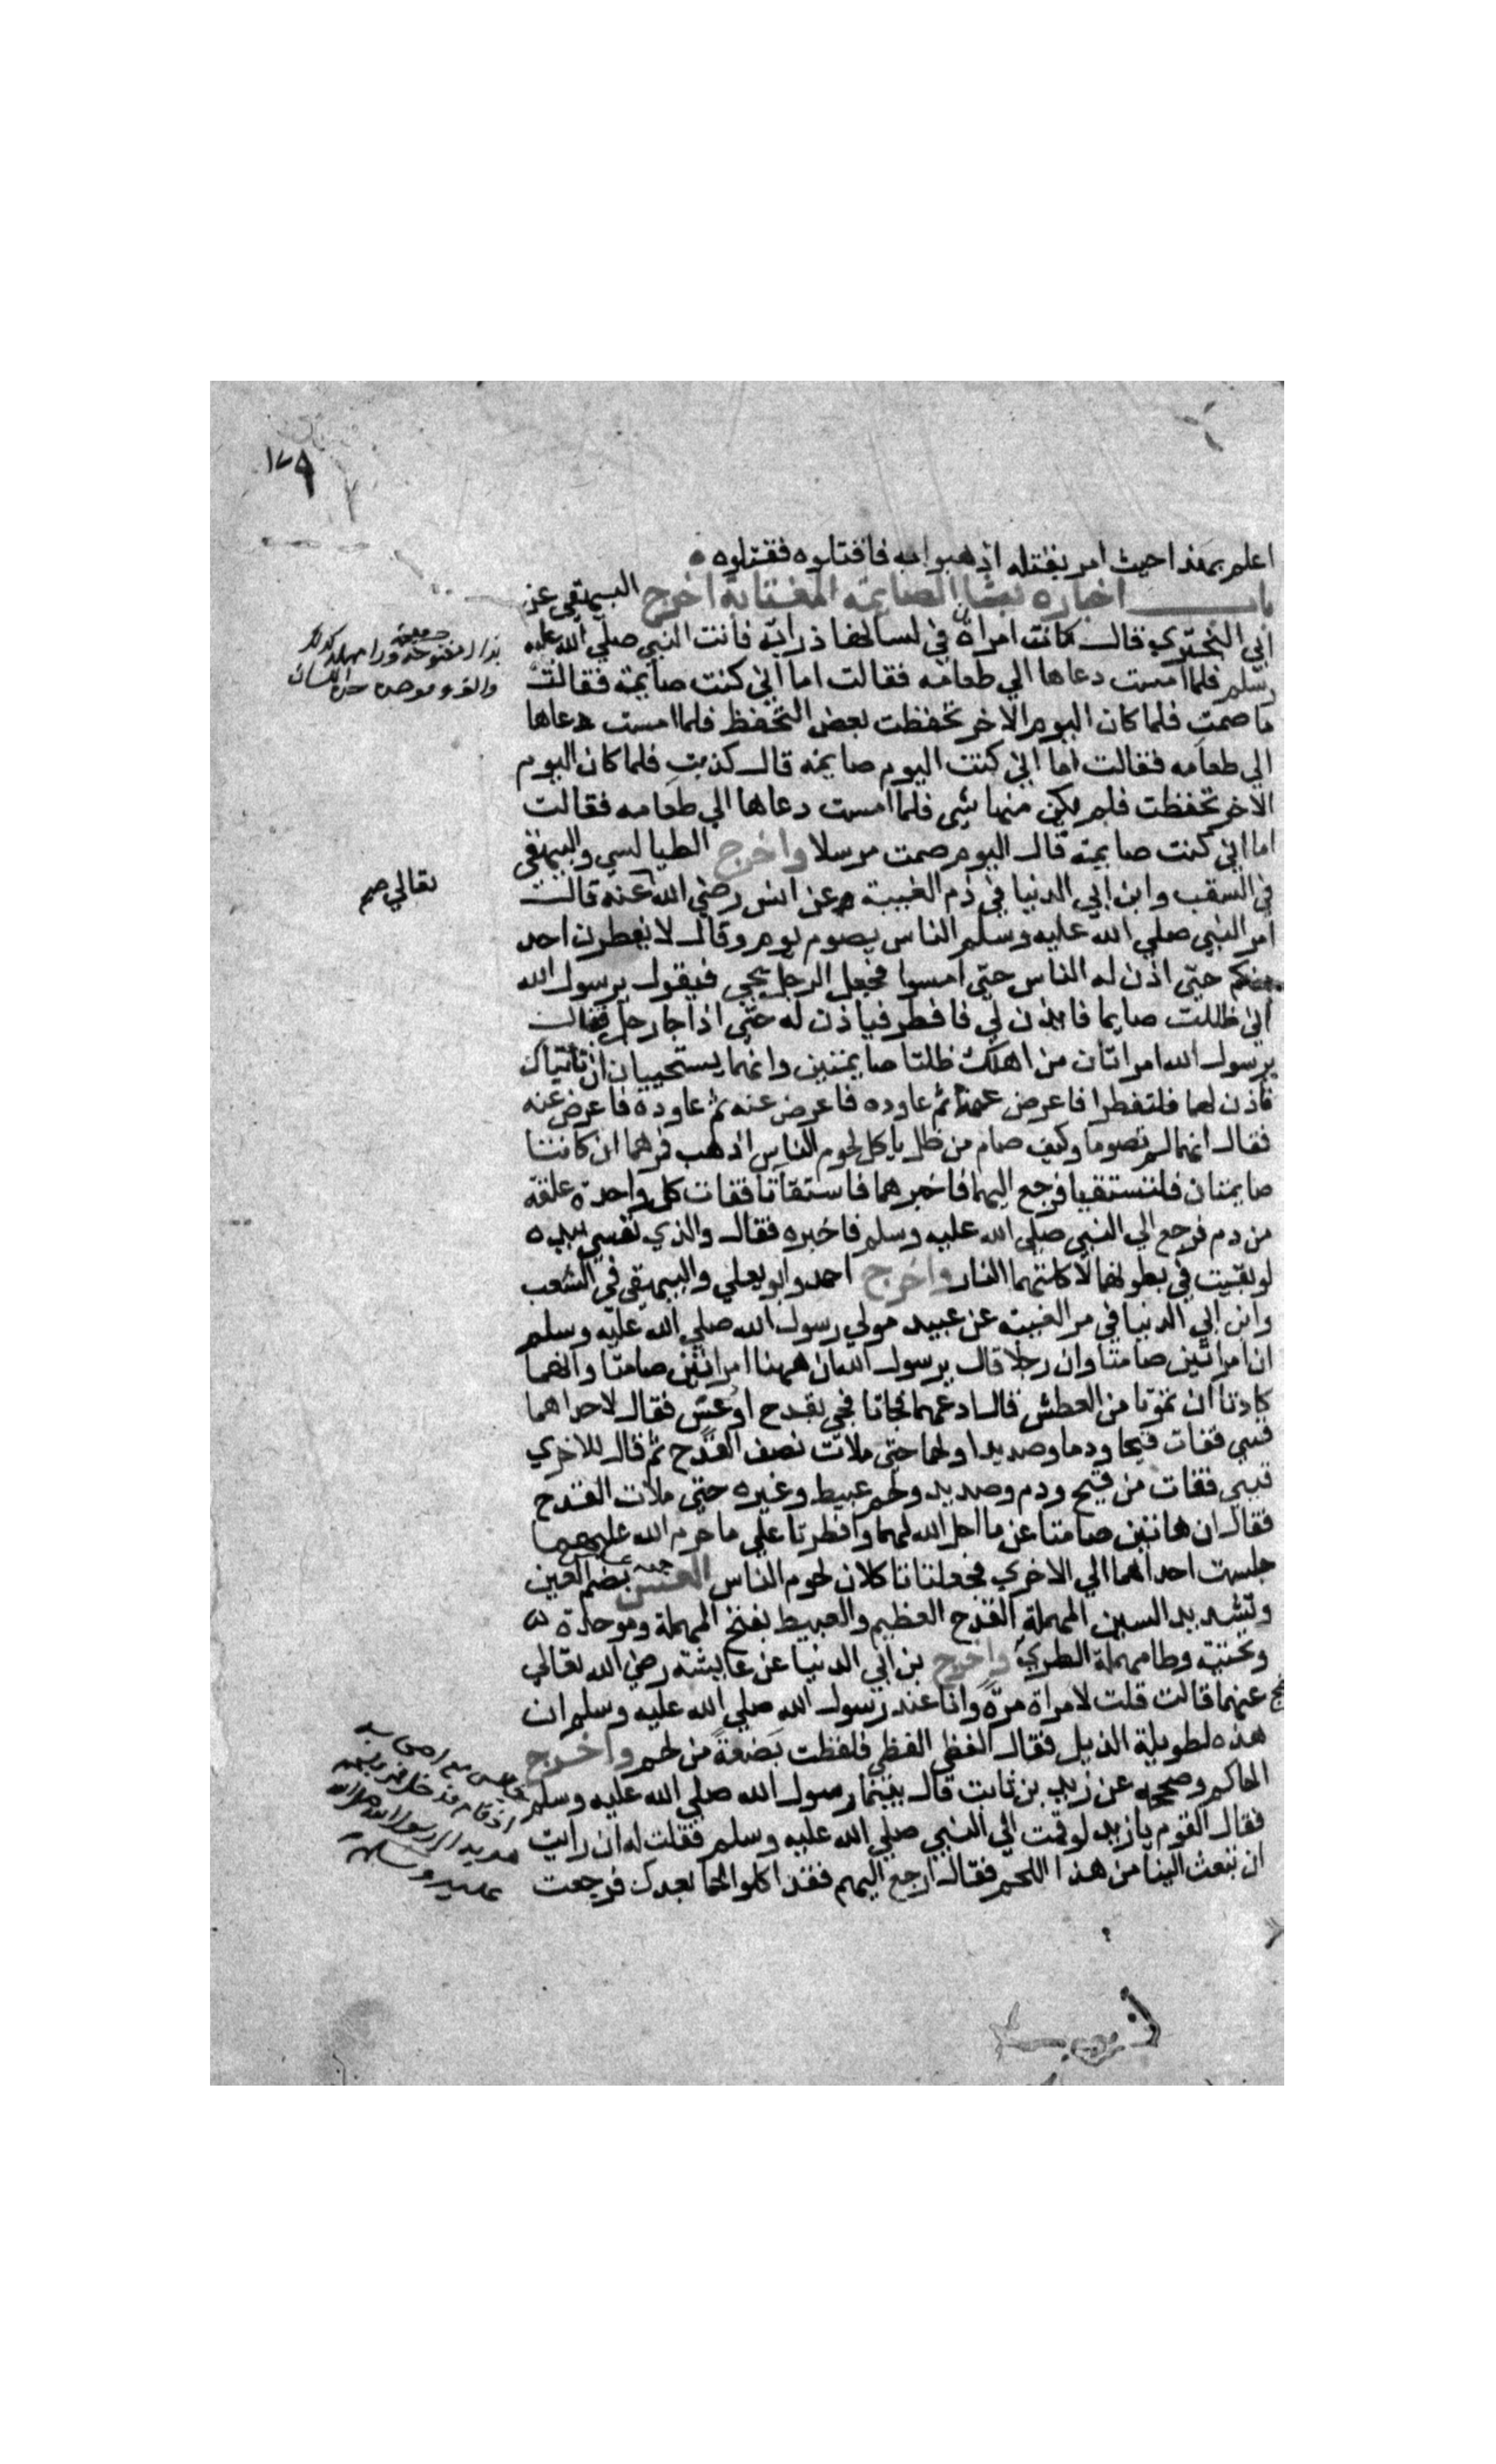 ١٧٩
اعلم بهذا حيث امر بقتله اذهبوا به فاقتلوه فقتلوه
باب اخباره بشان الصايمة المغتابة اخرج البيهقي عن
ابي البختري قال كانت امراة في لسانها ذرابة فاتت النبي صلي الله عليه
وسلم فلما امست دعاها الي طعامه فقالت اما اني كنت صايمة فقال
ما صمت فلما كان اليوم الاخر تحفظت بعض التحفظ فلما امست دعاها
الي طعامه فقالت اما اني كنت اليوم صايمة قال كذبت فلما كان اليوم
الاخر تحفظت فلم يكن منها شي فلما امست دعاها الي طعامه فقالت
اما اني كنت صايمة قال اليوم صمت مرسلا واخرج الطيالسي والبيهقي
في الشعب وابن ابي الدنيا في ذم الغيبة عن انس رضي الله عنه قالت
امر النبي صلي الله عليه وسلم الناس بصوم يوم وقال لا يفطرن احد
منكم حتي اذن له الناس حتي امسوا فجعل الرجل يجي فيقول يرسول الله
اني ظللت صايما فاذن لي فافطر فياذن له حتي اذا جا رجل فقال
يرسول الله امراتان من اهلك ظلتا صايمتين وانهما يستحييان ان تاتياك
فاذن لهما فلتفطرا فاعرض عنه ثم عاوده فاعرض عنه ثم عاوده فاعرض عنه
فقال انهما لم تصوما وكيف صام من ظل ياكل لحوم الناس اذهب فمرهما ان كانتا
صايمتان فلتستقيا فرجع اليهما فاخبرهما فاستقاتا فقات كل واحدة علقة
من دم فرجع الي النبي صلي الله عليه وسلم فاخبره فقال والذي نفسي بيده
لو بقيت في بطونهما لاكلتهما النار واخرج احمد وابو يعلي والبيهقي في الشعب
وابن ابي الدنيا في مر الغيبة عن عبيد مولي رسول الله صلي الله عليه وسلم
ان امراتين صامتا وان رجلا قال يرسول الله ان ههنا امراتين صامتا وانهما
كادتا ان تموتا من العطش قال ادعهما فجاتا فجي بقدح او عس فقال لاحداهما
قيي فقات قيحا ودما وصديدا ولحما حتي ملات نصف القدح ثم قال للاخري
قيي فقات من قيح ودم وصديد ولحم عبيط وغيره حتي ملات القدح
فقال ان هاتين صامتا عن ما احل الله لهما وافطرتا علي ما حرم الله عليهما
جلست احداهما الي الاخري فجعلتا تاكلان لحوم الناس العس بضم العين
وتشديد السين المهملة القدح العظيم والعبيط بفتح المهملة وموحدة
وتحتية وطا مهملة الطري واخرج بن ابي الدنيا عن عايشة رضي الله تعالي
عنهما قالت قلت لامراة مرة وانا عند رسول الله صلي الله عليه وسلم ان
هذه لطويلة الذيل فقال الفظي الفظي فلفظت بضعة من لحم واخرج
الحاكم وصححه عن زيد بن ثابت قال بينما رسول الله صلي الله عليه وسلم
فقال القوم يا زيد لو قمت الي النبي صلي الله عليه وسلم فقلت له ان رايت
ان تبعث الينا من هذا اللحم فقال ارجع اليهم فقد اكلوا لحما بعدك فرجعت
مفتوحة ورا مهملة
والف وموحدة حدة اللسان
تعالي صح
جالس مع اصحابه
اذ قام فدخل
الي رسول الله صلي الله
عليه وسلم